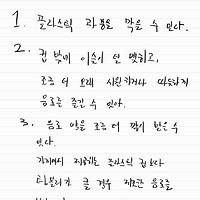 1. 플라스틱 과용을 막을 수 있다.
2. 컵 밖에 이슬이 안 맺히고,
조금 더 오래 시원하거나 따뜻하게
음료를 즐길 수 있어.
3. 음료 양을 조금 더 많이 받을 수
있다.
플라스틱 컵보다
텀블러가 클 경우 음료를